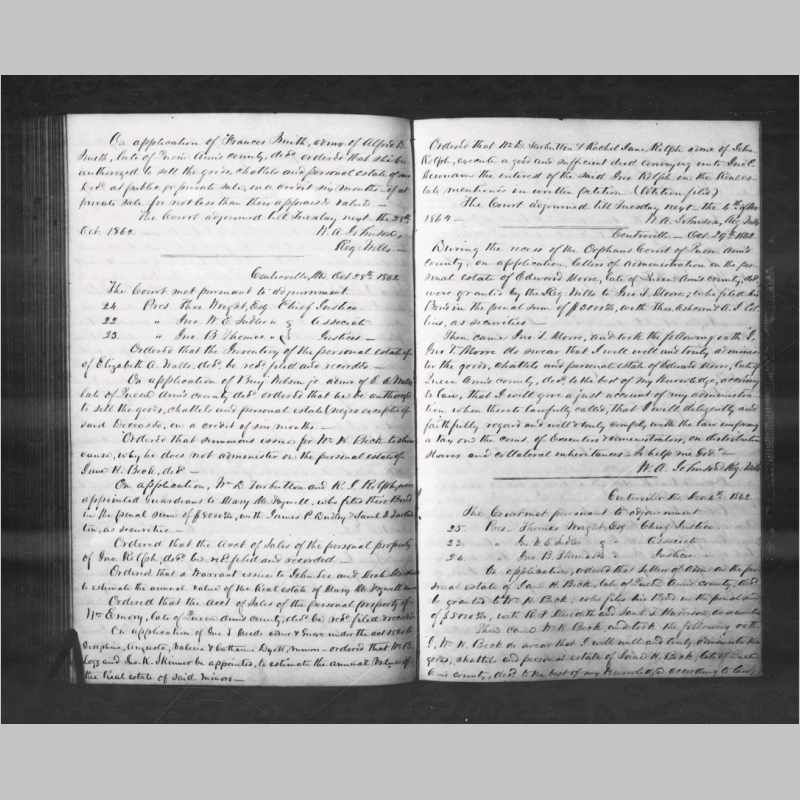 On application of Frances Smith, admx of Alfred B.
Smith, late of Queen Ann's county, decd. ordered that she be
authorized to sell the goods, chattels and personal estate of said
decd. at public or private sale, on a credit of six months — if at
private sale for not less than their appraised value. —
The Court adjourned till Tuesday next the 28th
Oct. 1862.
W. A. Johnson,
Reg. Wills —
Centreville, Md. Oct 28th 1862
The Court met pursuant to adjournment
24 Pres. Thos. Wright, Esq. Chief Justice
22 " Jno. W. E. Sudler & Associate
23. " Jno. B. Thomas Justices —
Ordered that the Inventory of the personal estate of
of Elizabeth A. Watts, decd. be recd. filed and recorded —
On application of Benj. Nelson jr. admr of E. A. Watts,
late of Queen Ann's county decd. ordered that he be authorized
to sell the goods, chattels and personal estate (negroes excepted) of
said deceased, on a credit of six months —
Ordered that summons issue for Wm. H. Beck, to show
cause, why he does not administer on the personal estate of
Jane H. Beck, decd. —
On application, Wm. D. Tarbutton and R. J. Rolph, were
appointed guardians to Mary M. Tignell, who filed their Bond
in the penal sum of $8000, with James P. Dudley & Saml.
as securities —
Ordered that the Acct of Sales of the personal property
of Jno. Rolph, decd. be recd. filed and recorded —
Ordered that a warrant issue to John Lee and
to estimate the annual value of the Real estate of Mary M. Tignell
Ordered that the Acct of Sales of the personal property of
Wm Emory, late of Queen Ann's county, decd. be recd. filed & recorded
On application of Jno. T.
Josephine, Augusta, Valeria & Catharine Dyott, minors — ordered that Wm. B.
and Jno. K. Skinner be appointed, to estimate the annual value of
the Real estate of said minors —
Ordered that W. D. Tarbutton & Rachel Jane Rolph admrs of John
Rolph, execute a good and sufficient deed conveying unto Jno. C.
the interest of the said Jno Rolph in the Real es-
tate mentioned in written petition (Petition filed)
The Court adjourned till Tuesday next the 4th of Nov
1862 —
W. A. Johnson, Reg. Wills
Centreville — Oct. 29th 1862
During the recess of the Orphans Court of Queen Ann's
county, on application, letters of administration on the per-
sonal estate of Edward Moore, late of Queen Ann's county, decd.
were granted by the Reg. Wills to Jno. T. Moore, who filed his
Bond in the penal sum of $3000, with Thos. & A. J. Col-
lins, as securities —
Then came Jno. T. Moore, and took the following oath "I,
Jno. T. Moore do swear that I will well and truly administer
the goods, chattels and personal estate of Edward Moore, late of
Queen Ann's county, decd. to the best of my knowledge, according
to law, that I will give a just account of my administra-
tion when thereto lawfully called, that I will diligently and
faithfully regard and well & truly comply with the law imposing
a tax on the coms. of Executors & administrators, on distributive
shares and collateral inheritances — So help me God" —
W. A. Johnson Reg. Wills
Centreville Md Nov 4th 1862
The Court met pursuant to adjournment
25. Pres. Thomas Wright, Esq Chief Justice
23 " Jno. W. E. Sudler & Associate
24 " Jno B. Thomas " Justices —
On application, ordered that Letters of Adm. on the per-
sonal estate of Jane H. Beck, late of Queen Ann's county, decd.
be granted to Wm. H. Beck, who filed his Bond in the penal sum
of $5000, with R. T. & Saml. T. Harrison, as securities
Then came Wm. H. Beck and took the following oath
I, Wm. H. Beck do swear that I will well and truly administer the
goods, chattels and personal estate of Jane H. Beck, late of Queen
Ann's county, decd. to the best of my knowledge according to law,